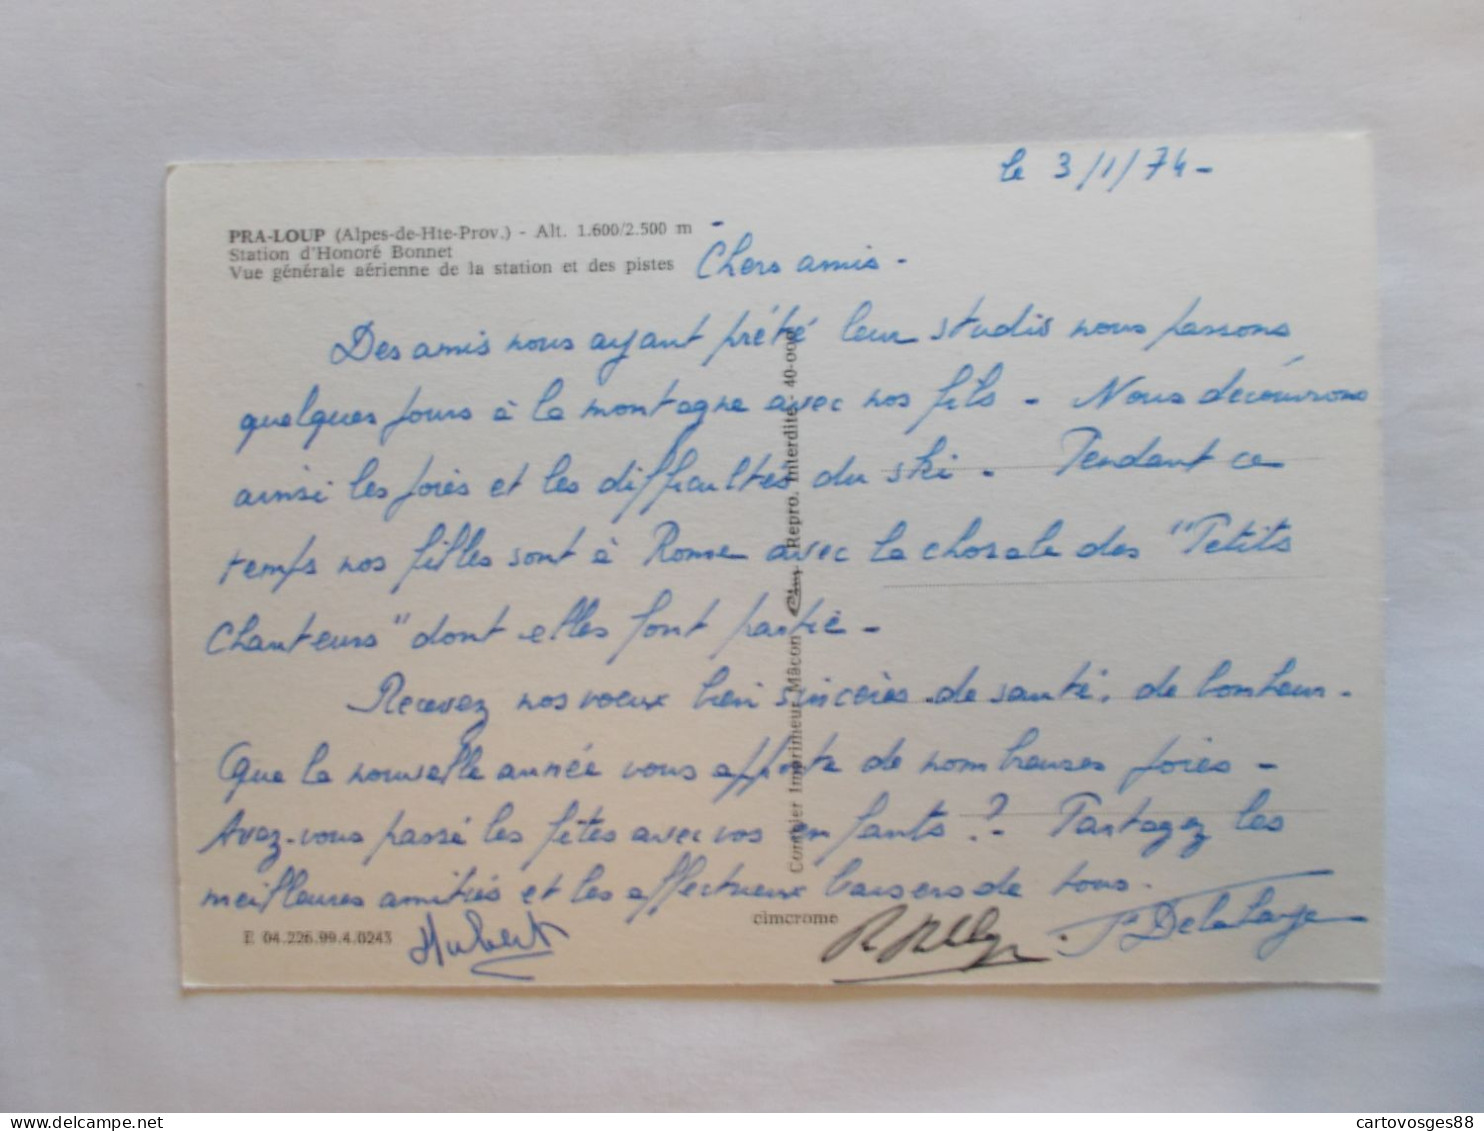 le 3/1/74-
PRA-LOUP (Alpes-de-Hte-Prov.) - Alt. 1.600/2.500 m
Station d'Honoré Bonnet
Vue générale aérienne de la station et des pistes
Chers amis.
Des amis nous ayant prêté leur studio nous passons
quelques jours à la montagne avec nos fils - Nous découvrons
ainsi les joies et les difficultés du ski - Pendant ce
temps nos filles sont à Rome avec la chorale des "Petits
Chanteurs" dont elles font partie -
Recevez nos voeux bien sincères de santé, de bonheur.
Que la nouvelle année vous apporte de nombreuses joies -
Avez-vous passé les fêtes avec vos enfants ? - Partagez les
meilleures amitiés et les affectueux baisers de tous.
Hubert
Delahaye
cimcrome
E 04.226.99.4.0243
Combier Imprimeur Mâcon Cim Repro. Interdite - 40-000
cartovosges88